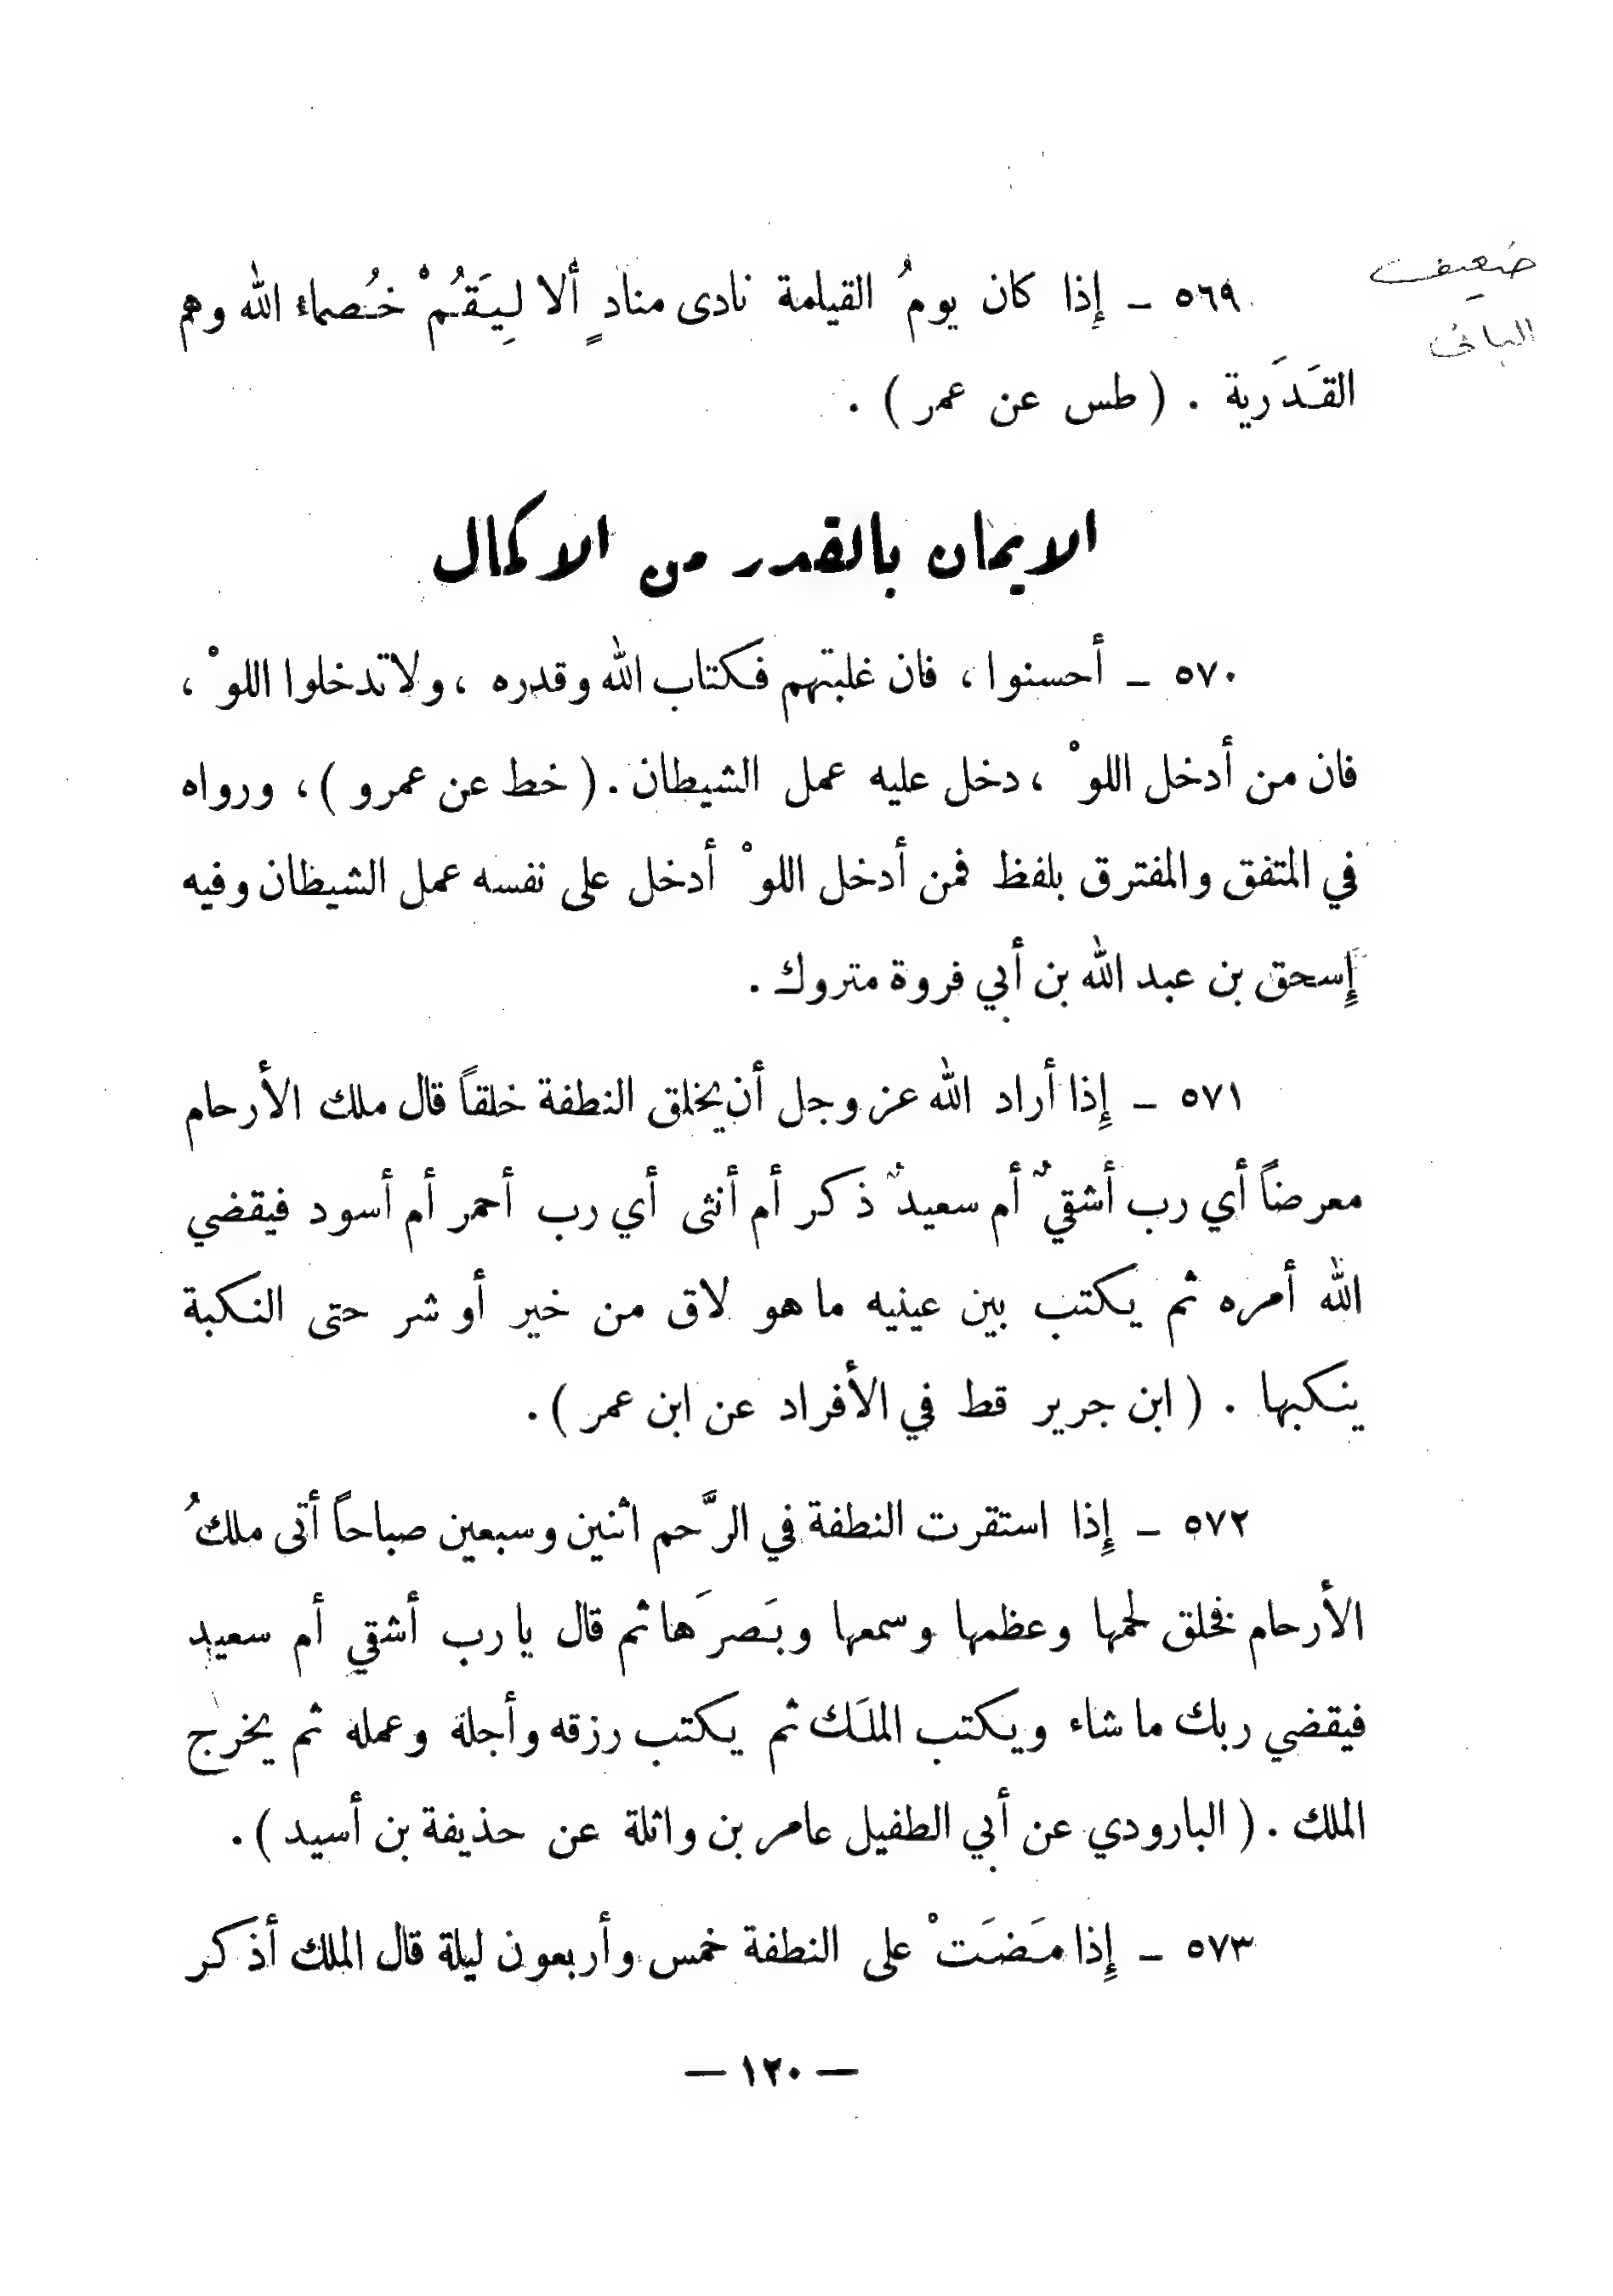 ضعيف
٥٦٩ – إذا كان يومُ القيامة نادى منادٍ ألا لِيَقُمْ خُصماء الله وهم
البانى
القَدَرية . ( طس عن عمر ) .
الايمان بالقدر من الاكمال
٥٧٠ – أحسنوا ، فان غلبتهم فكتاب الله وقدره ، ولا تدخلوا اللوْ ،
فان من أدخل اللوْ ، دخل عليه عمل الشيطان . ( خط عن عمرو ) ، ورواه
في المتفق والمفترق بلفظ فمن أدخل اللوْ أدخل على نفسه عمل الشيظان وفيه
إِسحق بن عبد الله بن أبي فروة متروك .
٥٧١ – إِذا أراد الله عز وجل أن يخلق النطفة خلقاً قال ملك الأرحام
معرضاً أي رب أشقيٌ أم سعيدٌ ذكر أم أنثى أي رب أحمر أم أسود فيقضي
الله أمره ثم يكتب بين عينيه ما هو لاق من خير أو شر حتى النكبة
ينكبها . ( ابن جرير قط في الأفراد عن ابن عمر ) .
٥٧٢ – إِذا استقرت النطفة في الرَّحم اثنين وسبعين صباحاً أتى ملكُ
الأرحام فخلق لحمها وعظمها وسمعها وبَصرَها ثم قال يا رب أشقي أم سعيد
فيقضي ربك ما شاء ويكتب الملَك ثم يكتب رزقه وأجله وعمله ثم يخرج
الملك . ( البارودي عن أبي الطفيل عامر بن واثلة عن حذيفة بن أسيد ) .
٥٧٣ – إِذا مَضَتْ على النطفة خمس وأربعون ليلة قال الملك أذكر
— ١٢٠ —